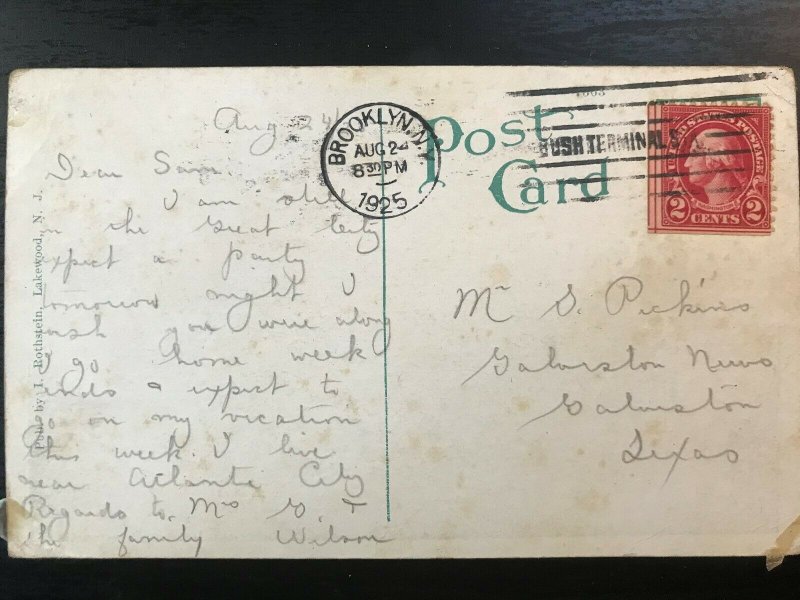 Aug 24/
Dear Sam
I am still
in the Great City
expect a party
tomorrow night I
wish you were along
I go home week
ends & expect to
go on my vication
this week I live
near Atlante City
Regards to Mrs S. &
the family Wilson
Pub. by I. Rothstein, Lakewood, N. J.
BROOKLYN, N.Y.
AUG 24
8 30 PM
1925
1003
BUSH TERMINAL
Post
Card
UNITED STATES POSTAGE
WASHINGTON
2 CENTS 2
Mr S. Pickins
Galverston News
Galveston
Texas